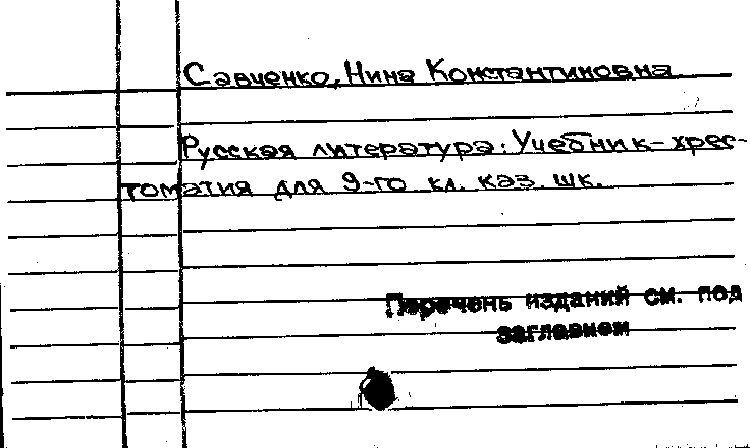 Савченко, Нина Константиновна
Русская литература: Учебник-хрес-
томатия для 9-го кл. каз. шк.
Перечень изданий см. под
заглавием